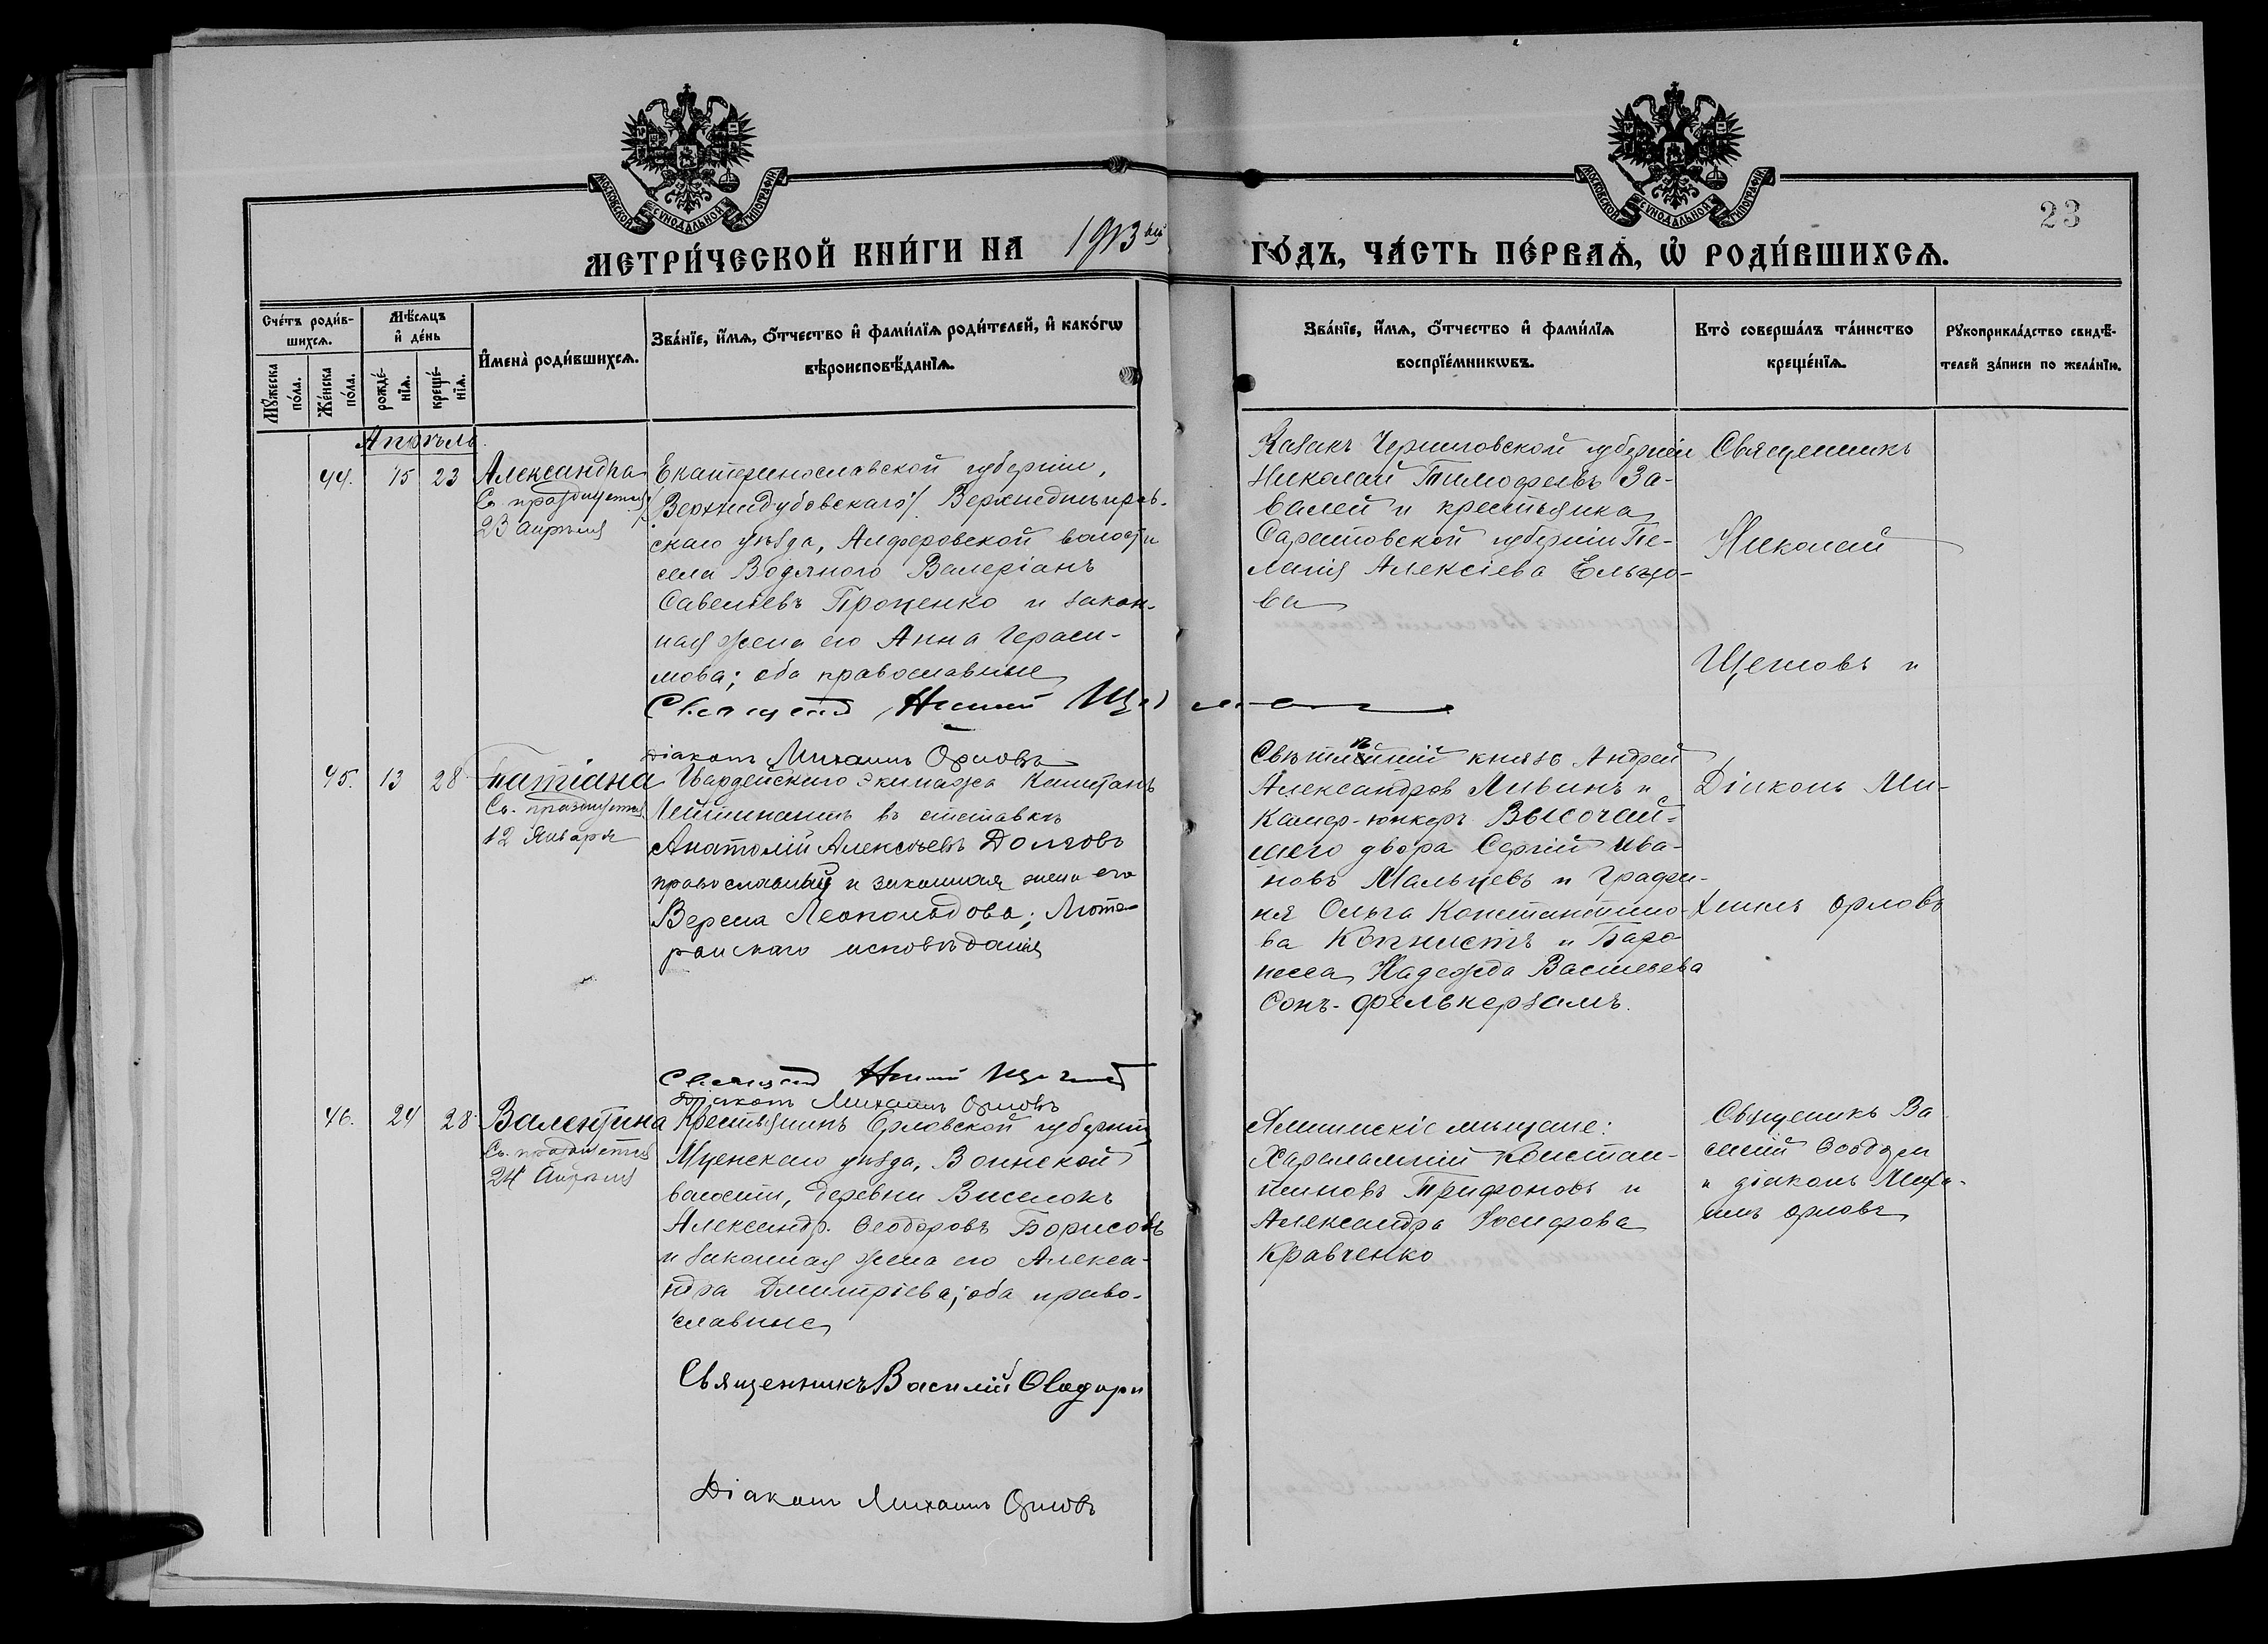 МОСКОВСКОЙ СѴНОДАЛЬНОЙ ТИПОГРАФІИ
МОСКОВСКОЙ СѴНОДАЛЬНОЙ ТИПОГРАФІИ
23
МЕТРИ́ЧЕСКОЙ КНИ́ГИ НА 1913 ГО́ДЪ, ЧА́СТЬ ПЕ́РВАѦ, Ѽ РОДИ́ВШИХСѦ.
Сче́тъ роди́в-
шихсѧ.
Мѣ́сѧцъ
и҆ де́нь
Мꙋ́жеска
по́ла.
Же́нска
по́ла.
рожде́-
нїѧ.
креще́-
нїѧ.
И҆мена̀ роди́вшихсѧ.
Зва́нїе, и҆́мѧ, ѻ҆́тчество и҆ фами́лїѧ роди́телей, и҆ како́гѡ
вѣроисповѣ́данїѧ.
Зва́нїе, и҆́мѧ, ѻ҆́тчество и҆ фами́лїѧ
воспрїе́мникѡвъ.
Кто̀ соверша́лъ та́инство
креще́нїѧ.
Рꙋкоприкла́дство свидѣ́-
телей за́писи по жела́нїю.
Апрѣль
44. 15 23 Александра
Св. празднуется
23 апрѣля
Екатеринославской губерніи,
Верхнедубовскаго/ Верхнеднѣпров-
скаго уѣзда, Алферовской волости
села Водяного Валеріанъ
Савельевъ Проценко и закон-
ная жена его Анна Гераси-
мова; оба православные
Казакъ Черниговской губерніи
Николай Тимофеевъ За-
валей и крестьянка
Саратовской губерніи Пе-
лагія Алексіева Ельхо-
ва
Священникъ
Николай
Щеголевъ и
Діаконъ Михаилъ Орловъ
45. 13 28 Татіана
Св. празднуется
12 Января
Гвардейскаго Экипажа Капитанъ
Лейтенантъ въ отставкѣ
Анатолій Алексѣевъ Долговъ
православный и законная жена его
Верена Леопольдова; Люте-
ранскаго исповѣданія
Свѣтлѣйшій князь Андрей
Александровъ Ливенъ и
Камер-юнкеръ Высочай-
шего двора Сергій Ива-
новъ Мальцевъ и Графи-
ня Ольга Константино-
ва Капнистъ и Баро-
несса Надежда Васильева
Фонъ-Фелькерзамъ.
Діаконъ Ми-
хаилъ Орловъ
Діаконъ Михаилъ Орловъ
46. 24 28 Валентина
Св. празднуется
24 Апрѣля
Крестьянинъ Орловской губерніи
Мценскаго уѣзда, Воинской
волости, деревни Виселокъ
Александр. Ѳеодоровъ Борисовъ
и законная жена его Алекса-
ндра Дмитріева; оба право-
славные
Ялтинскіе мѣщане:
Харлампій Констан-
тиновъ Трифоновъ и
Александра Іосифова
Кравченко
Священникъ Ва
силій
и діаконъ Миха-
илъ Орловъ
Священникъ Василій
Діаконъ Михаилъ Орловъ